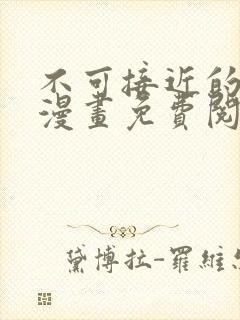 不可接近的
漫畫免費閱
黛博拉-羅維